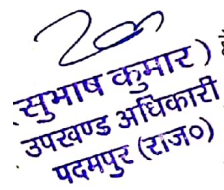 सुभाष कुमार)
उपखण्ड अधिकारी
पदमपुर (राज०)